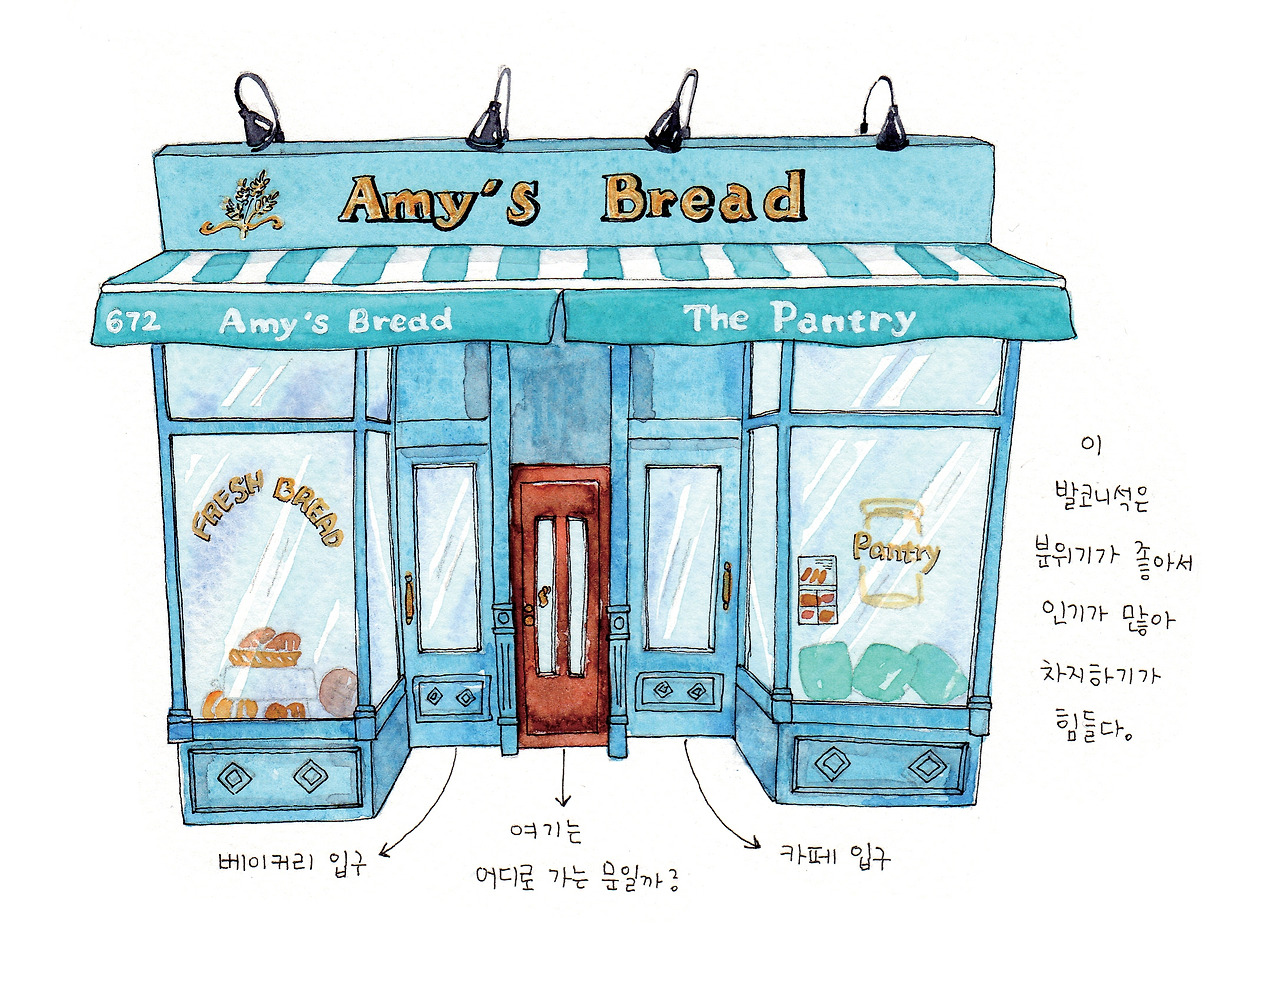 Amy's Bread
672 Amy's Bread
The Pantry
FRESH BREAD
Pantry
이
발코니석은
분위기가 좋아서
인기가 많아
차지하기가
힘들다.
베이커리 입구
여기는
어디로 가는 문일까?
카페 입구